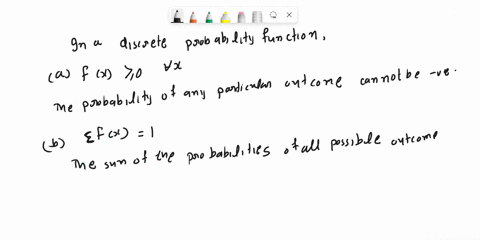 In a discrete probability function,
(a) f(x) ≥0 ∀x
The probability of any particular outcome cannot be -ve.
(b) Σf(x) = 1
The sum of the probabilities of all possible outcome